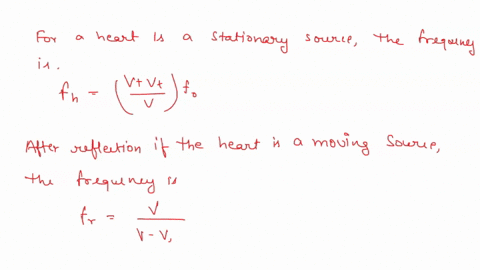 For a heart is a stationary source, the frequency
is.
f_h = (V + V_t / V) f_o
After reflection if the heart is a moving source,
the frequency is
f_r = V / V - V,